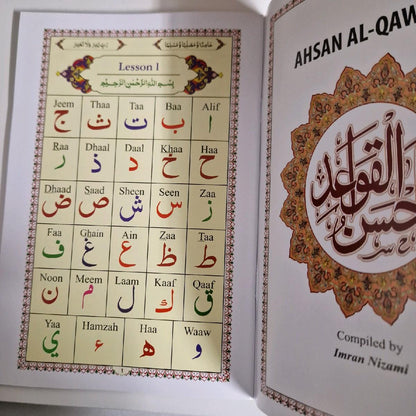 حَامِدًا وَّمُصَلِّيًا وَّمُسَلِّمًا
Lesson 1
بِسْمِ اللّٰهِ الرَّحْمٰنِ الرَّحِيْمِ
Jeem Thaa Taa Baa Alif
ا ب ت ث ج
Raa Dhaal Daal Khaa Haa
ح خ د ذ ر
Dhaad Saad Sheen Seen Zaa
ز س ش ص ض
Faa Ghain Ain Zaa Taa
ط ظ ع غ ف
Noon Meem Laam Kaaf Qaaf
ق ك ل م ن
Yaa Hamzah Haa Waaw
و ه ء ي
AHSAN AL-QAW
القواعد
Compiled by
Imran Nizami